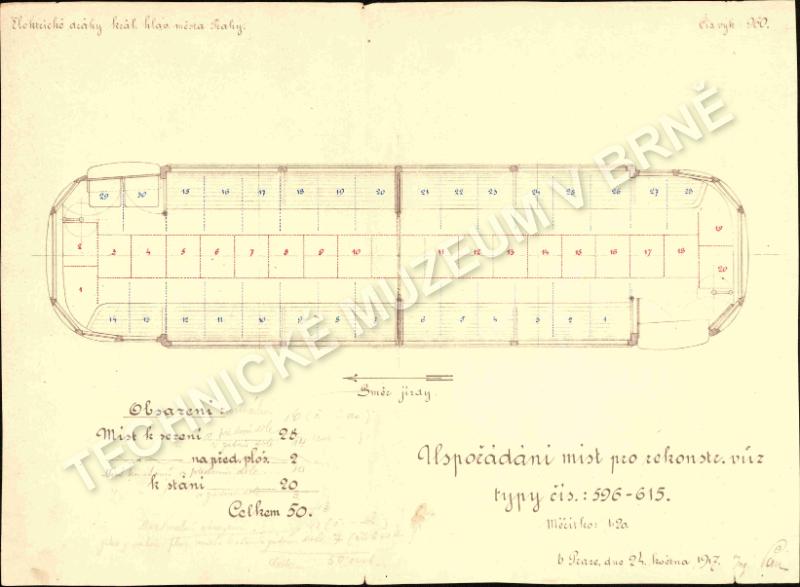 Elektrické dráhy král. hlav. města Prahy.
Čís. výk. 960.
29 30 15 16 17 18 19 20 21 22 23 24 28 26 27 28
2 3 4 5 6 7 8 9 10 11 12 13 14 15 16 17 18 19
1 20
14 13 12 11 10 9 8 7 6 5 4 3 2 1
Směr jízdy.
Obsazení:
Míst k sezení 28
na před. ploš. 2
k stání 20
Celkem 50.
Uspořádání míst pro rekonstr. vůz
typy čís.: 596-615.
Měřítko: 1:20.
V Praze, dne 24. května 1917.
TECHNICKÉ MUZEUM V BRNĚ